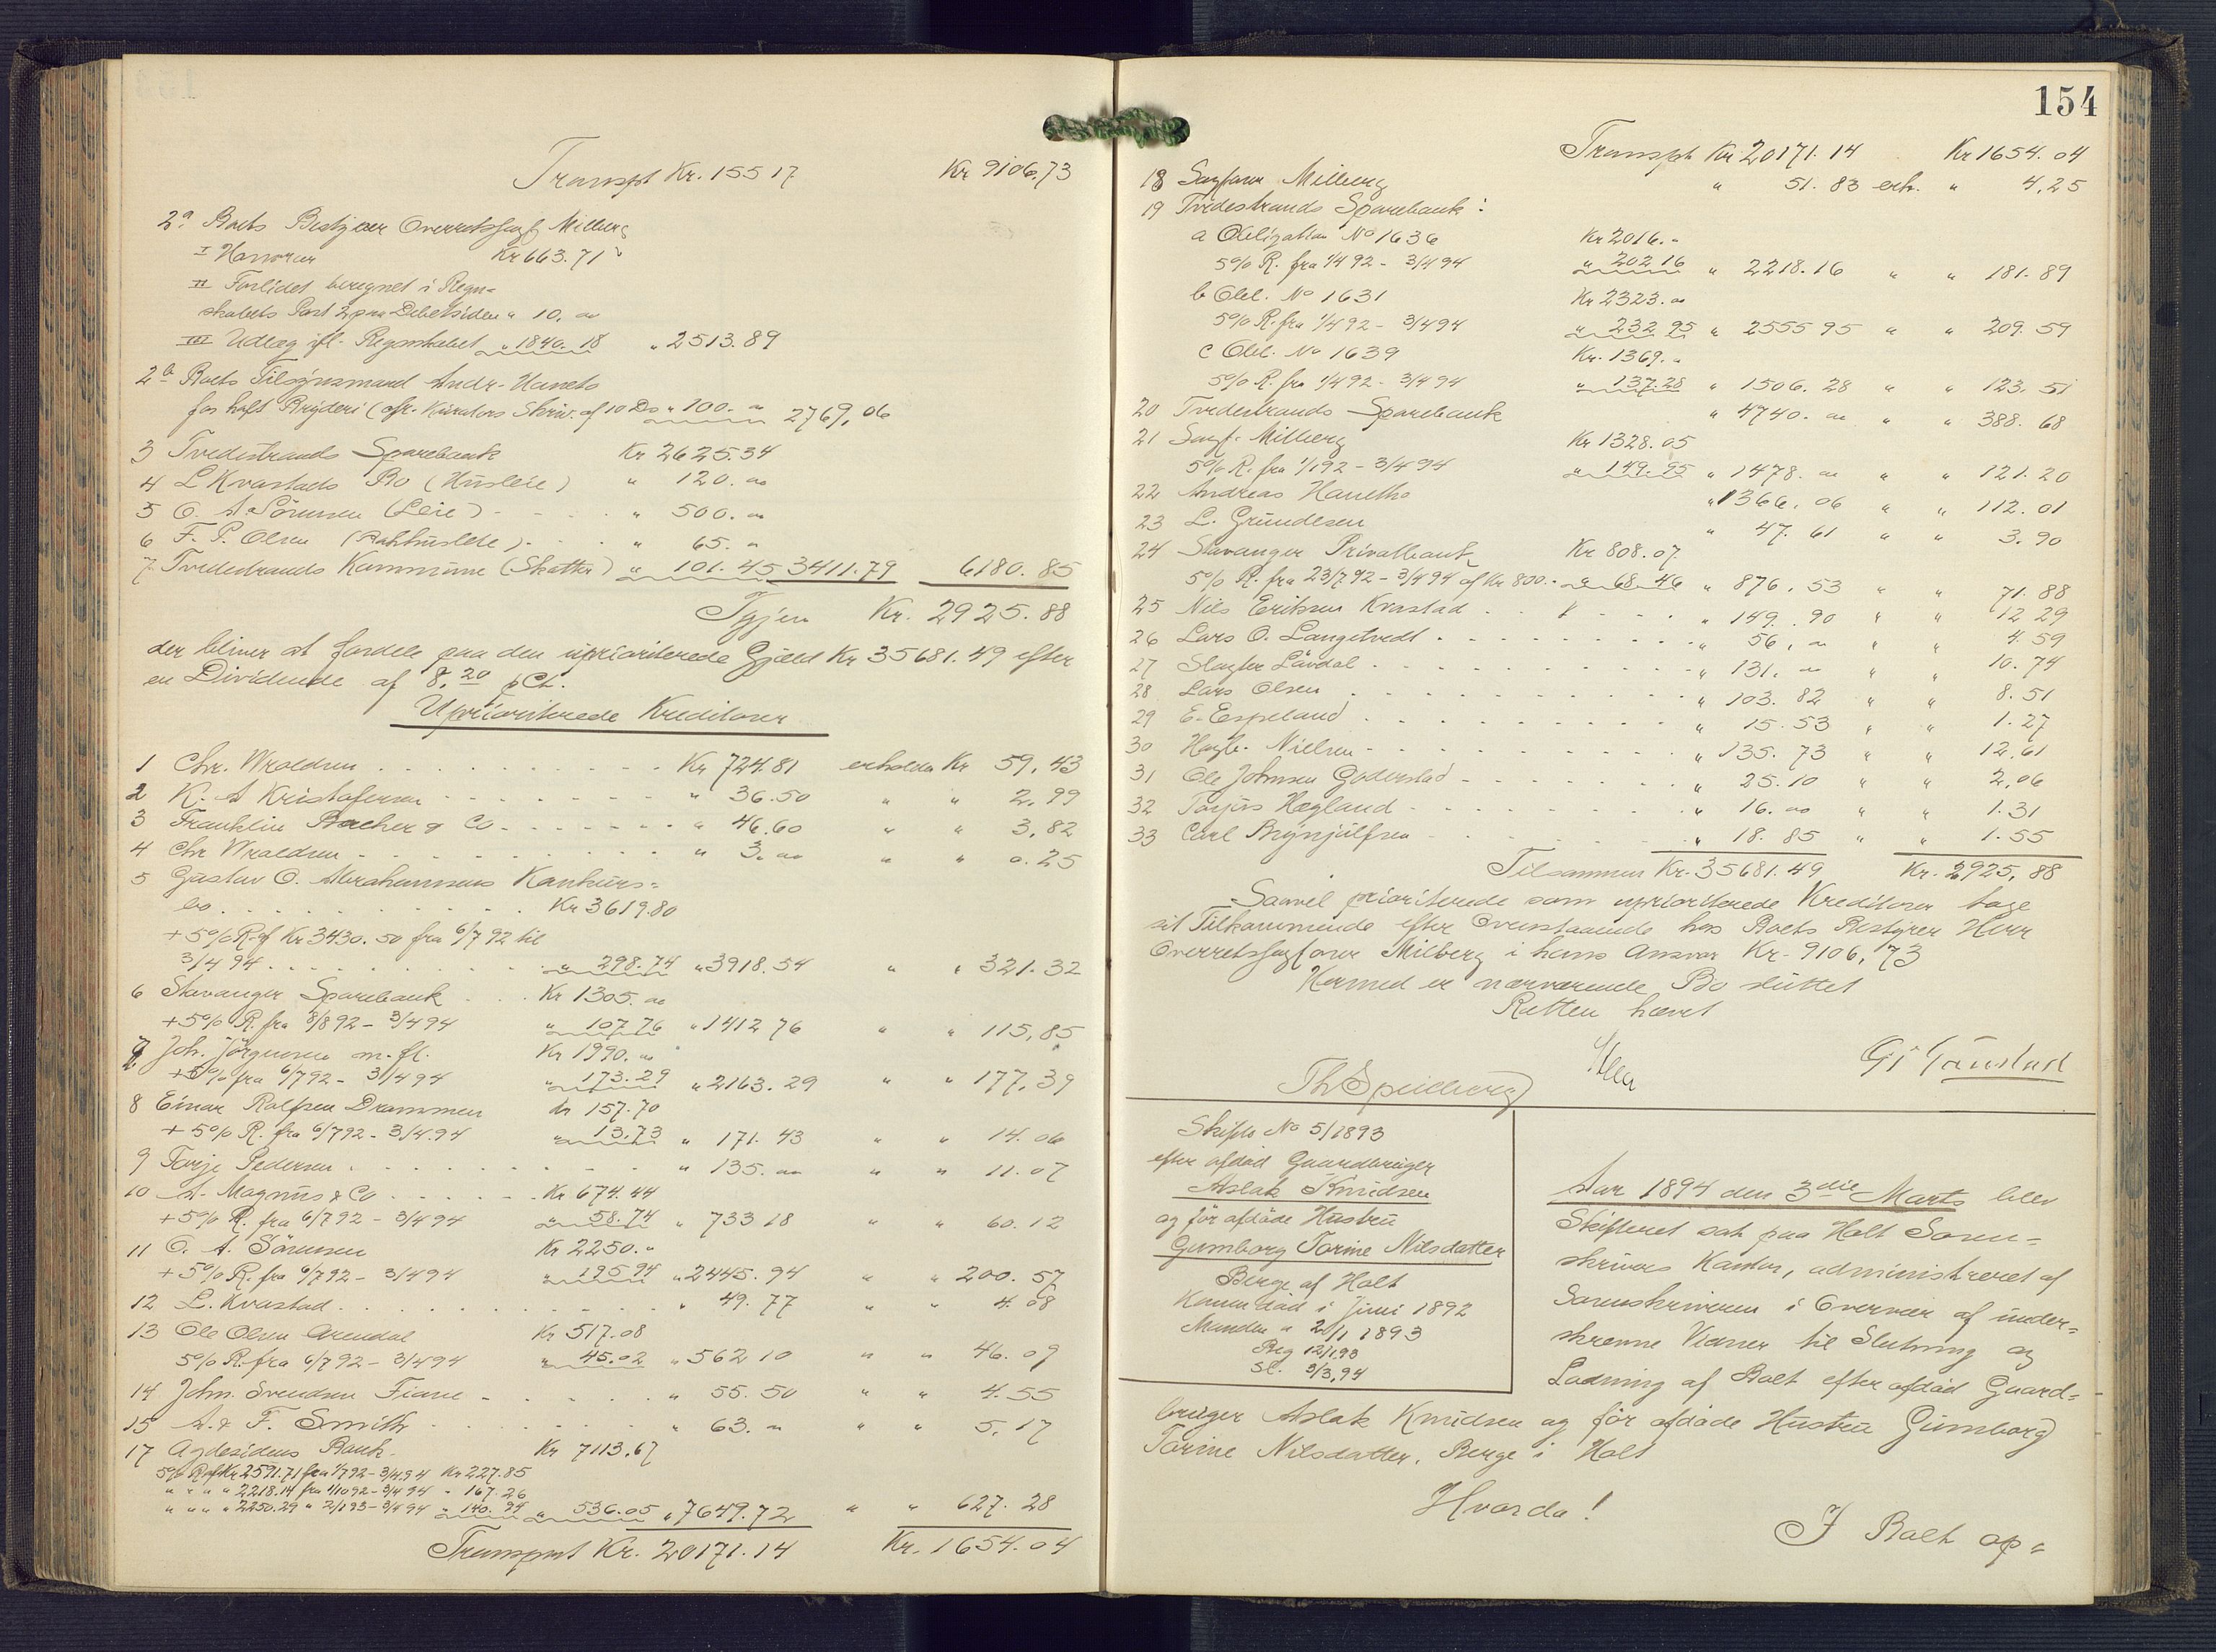 Transpt Kr. 155 17 Kr 9106.73
2a Boets Bestyrer Overretssagf Milberg
I Honorar Kr 663.71
II Forlidet beregnet i Regn-
skabets Post 2 paa Debetsiden " 10. "
III Udlæg ifl. Regnskabet " 1840.18 " 2513.89
2b Boets Tilsynsmand Andr. Haneto
for haft Bryderi (cfr. Kurators Skriv. af 10 Ds " 100. " 2769,06
3 Tvedestrands Sparebank Kr 2625.34
4 L Kvastads Bo (Husleie) " 120. "
5 O. A. Sörensen (Leie) " 500. "
6 F. P. Olsen (Pakhusleie) " 65. "
7 Tvedestrands Kommune (Skatter) " 101.45 3411.79 6180.85
Igjen Kr. 2925.88
der bliver at fordele paa den uprioriterede Gjæld Kr 35681.49 efter
en Dividende af 8,20 pCt.
Uprioriterede Kreditorer
1 Chr. Wroldsen Kr 724.81 erholder Kr 59,43
2 K. A Kristofersen " 36.50 " " 2,99
3 Franklin Bacher & Co " 46.60 " " 3,82
4 Chr Wroldsen " 3. " " " 0.25
5 Gustav O. Abrahamsens Konkurs-
bo Kr 3619.80
+ 5% R. af Kr 3430.50 fra 6/7 92 til
3/4 94 " 298.74 " 3918.54 " " 321.32
6 Stavanger Sparebank Kr 1305. "
+ 5% R. fra 8/8 92 - 3/4 94 " 107.76 " 1412 76 " " 115,85
7 Joh. Jörgensen m. fl. Kr 1990. "
+ 5% fra 6/7 92 - 3/4 94 " 173.29 " 2163.29 " " 177,39
8 Einar Rolfsen Drammen Kr 157.70
+ 5% R. fra 6/7 92 - 3/4 94 " 13.73 " 171.43 " " 14.06
9 Torje Pedersen " 135. " " " 11.07
10 A. Magnus & Co Kr 674.44
+ 5% R. fra 6/7 92 - 3/4 94 " 58.74 " 733 18 " " 60.12
11 O. A. Sörensen Kr 2250. "
+ 5% R. fra 6/7 92 - 3/4 94 " 195 94 " 2445.94 " " 200.57
12 L. Kvastad " 49.77 " " 4.08
13 Ole Olsen Arendal Kr 517.08
5% R. fra 6/7 92 - 3/4 94 " 45.02 " 562 10 " " 46.09
14 John. Svendsen Fiane " 55.50 " " 4.55
15 A. & F. Smith " 63. " " " 5.17
17 Agdesidens Bank Kr 7113.67
5% R af Kr 2591.71 fra 1/7 92 - 3/4 94 Kr 227.85
" " " " 2218.14 fra 1/10 92 - 3/4 94 " 167.26
" " " " 2250.29 " 2/1 93 - 3/4 94 " 140.94 " 536.05 " 7649.72 " " 627.28
Transport Kr. 20171.14 Kr. 1654.04
154
Transpt Kr 20171.14 Kr 1654.04
18 Sagfører Milberg " 51.83 erh. " 4,25
19 Tvedestrands Sparebank:
a Obligation No 1636 Kr 2016. "
5% R. fra 1/4 92 - 3/4 94 " 202 16 " 2218.16 " " 181.89
b Obl. No 1631 Kr 2323. "
5% R. fra 1/4 92 - 3/4 94 " 232 95 " 2555 95 " " 209.59
c Obl. No 1639 Kr. 1369. "
5% R. fra 1/4 92 - 3/4 94 " 137.28 " 1506.28 " " 123.51
20 Tvedestrands Sparebank " 4740. " " " 388.68
21 Sagf. Milberg Kr 1328.05
5% R. fra 1/1 92 - 3/4 94 " 149.95 " 1478. " " " 121.20
22 Andreas Hanetho " 1366,06 " " 112.01
23 L. Grundesen " 47.61 " " 3.90
24 Stavanger Privatbank Kr 808.07
5% R. fra 23/7 92 - 3/4 94 af Kr 800. " " 68.46 " 876,53 " " 71.88
25 Nils Eriksen Kvastad " 149.90 " " 12 29
26 Lars O. Langetvedt " 56, " " " 4.59
27 Slagter Lövdal " 131. " " " 10.74
28 Lars Olsen " 103.82 " " 8.51
29 E. Espeland " 15.53 " " 1.27
30 Haagb. Nielsen " 135.73 " " 12,61
31 Ole Johnsen Goderstad " 25.10 " " 2,06
32 Torjus Hegland " 16. " " " 1.31
33 Carl Brynjulfsen " 18.85 " " 1.55
Tilsammen Kr. 35681.49 Kr. 2925,88
Saavel prioriterede som uprioriterede Kreditorer tage
sit Tilkommende efter Ovenstaaende hos Boets Bestyrer Herr
Overretssagfører Milberg i hans Ansvar Kr. 9106,73
Hermed er nærværende Bo sluttet
Retten hævet
Th Speilberg
Skifte No 5/1893
efter afdöd Gaardbruger
Aslak Knudsen
og för afdöde Hustru
Gumborg Torine Nilsdatter
Berge af Holt
Konen död i Juni 1892
Manden " 20/1 1893
Beg 12/1 93
Sl. 3/3,94
Aar 1894 den 3die Marts blev
Skifteret sat paa Holt Soren-
skrivers Kontor, administreret af
Sorenskriveren i Overvær af under-
skrevne Vidner til Slutning og
Lodning af Boet efter afdöd Gaard-
bruger Aslak Knudsen og för afdöde Hustru Gumborg
Torine Nilsdatter, Berge i Holt
Hvorda!
I Boet op-